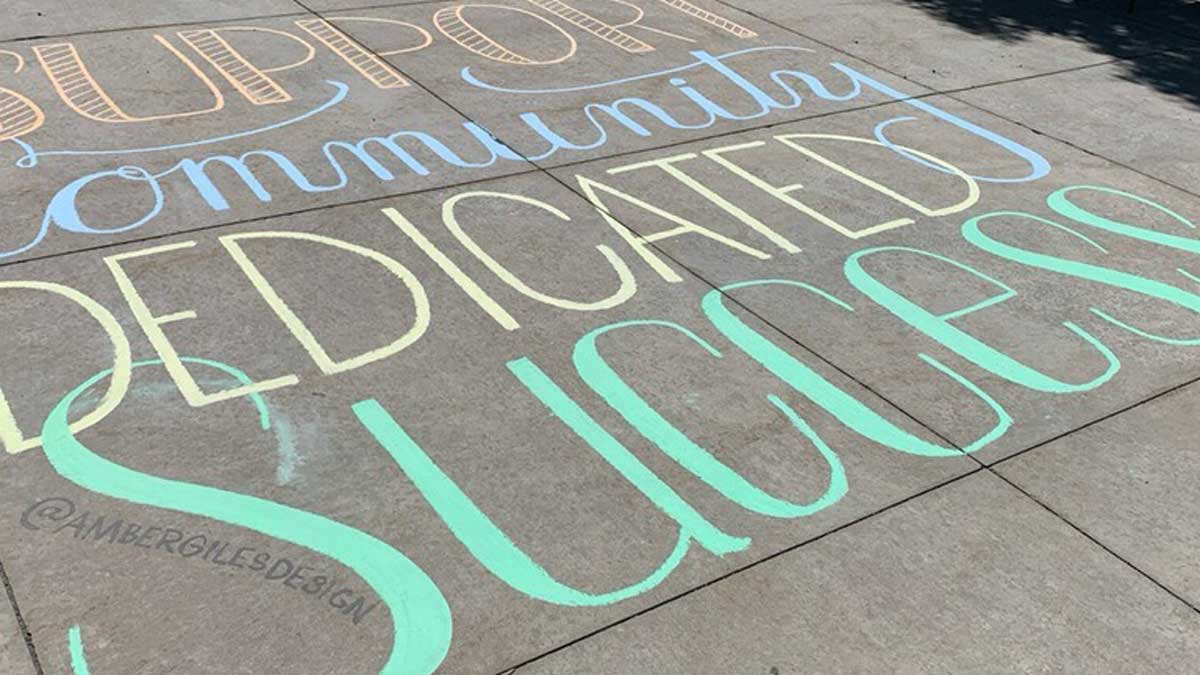 SUPPORT
Community
DEDICATED
Success
@AMBERGILESDESIGN